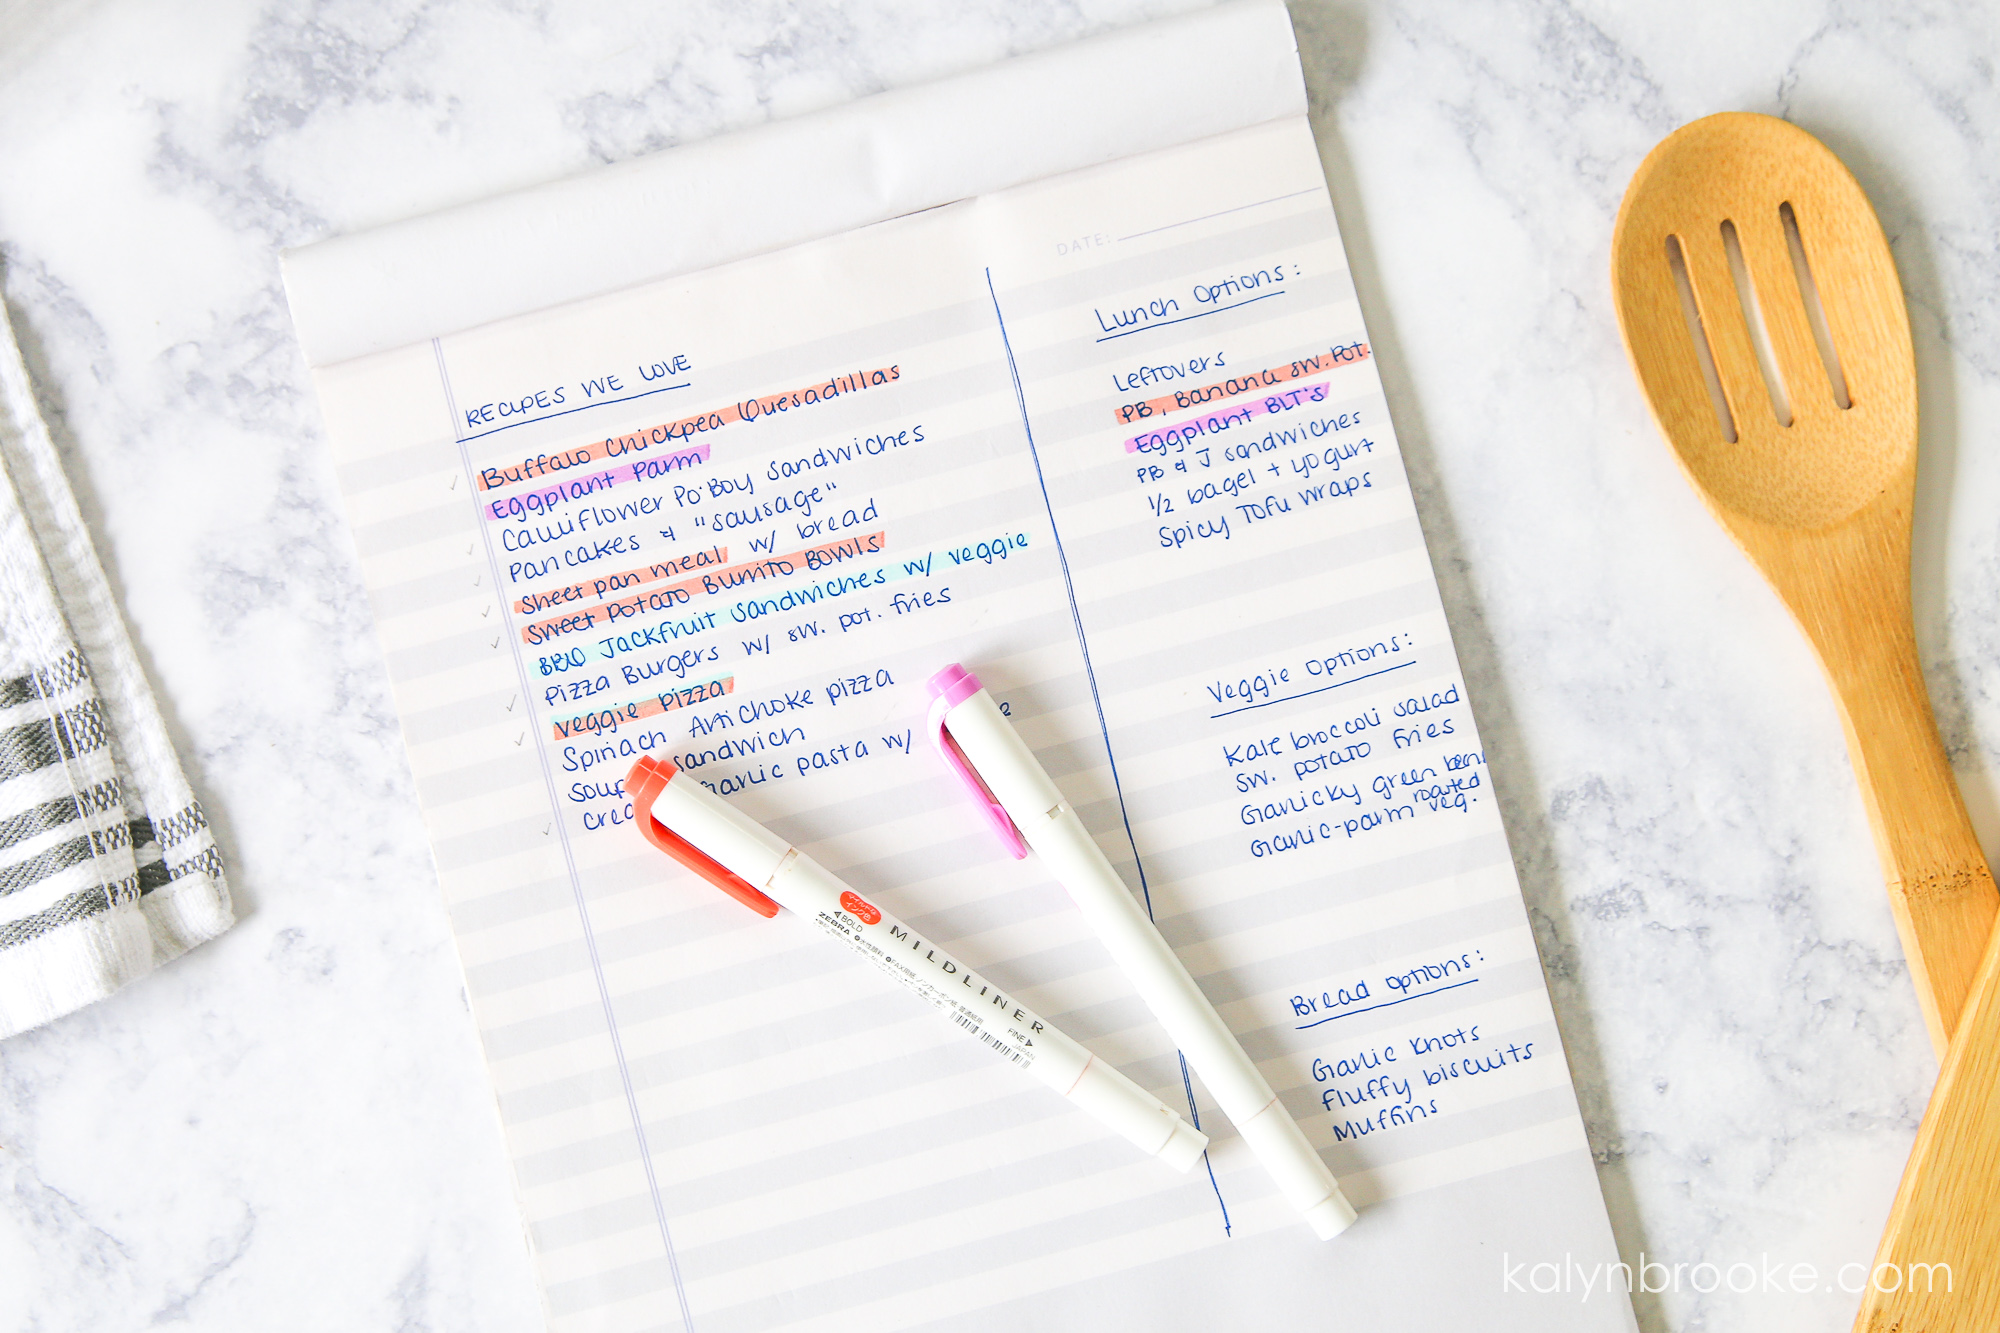 DATE:
RECIPES WE LOVE
Buffalo Chickpea Quesadillas
Eggplant Parm
Cauliflower Po'Boy Sandwiches
Pancakes & "sausage"
Sheet pan meal w/ bread
Sweet Potato Burrito Bowls
BBQ Jackfruit Sandwiches w/ veggie
Pizza Burgers w/ sw. pot. fries
veggie pizza
Spinach Artichoke pizza
Soup sandwich
garlic pasta w/
Lunch Options:
Leftovers
PB, Banana sw. Pot.
Eggplant BLT's
PB & J sandwiches
1/2 bagel + yogurt
Spicy Tofu wraps
Veggie Options:
Kale broccoli salad
Sw. potato fries
Garlicky green beans
Garlic-parm roasted veg.
Bread Options:
Garlic Knots
Fluffy biscuits
Muffins
BOLD
ZEBRA
MILDLINER
FINE
JAPAN
kalynbrooke.com